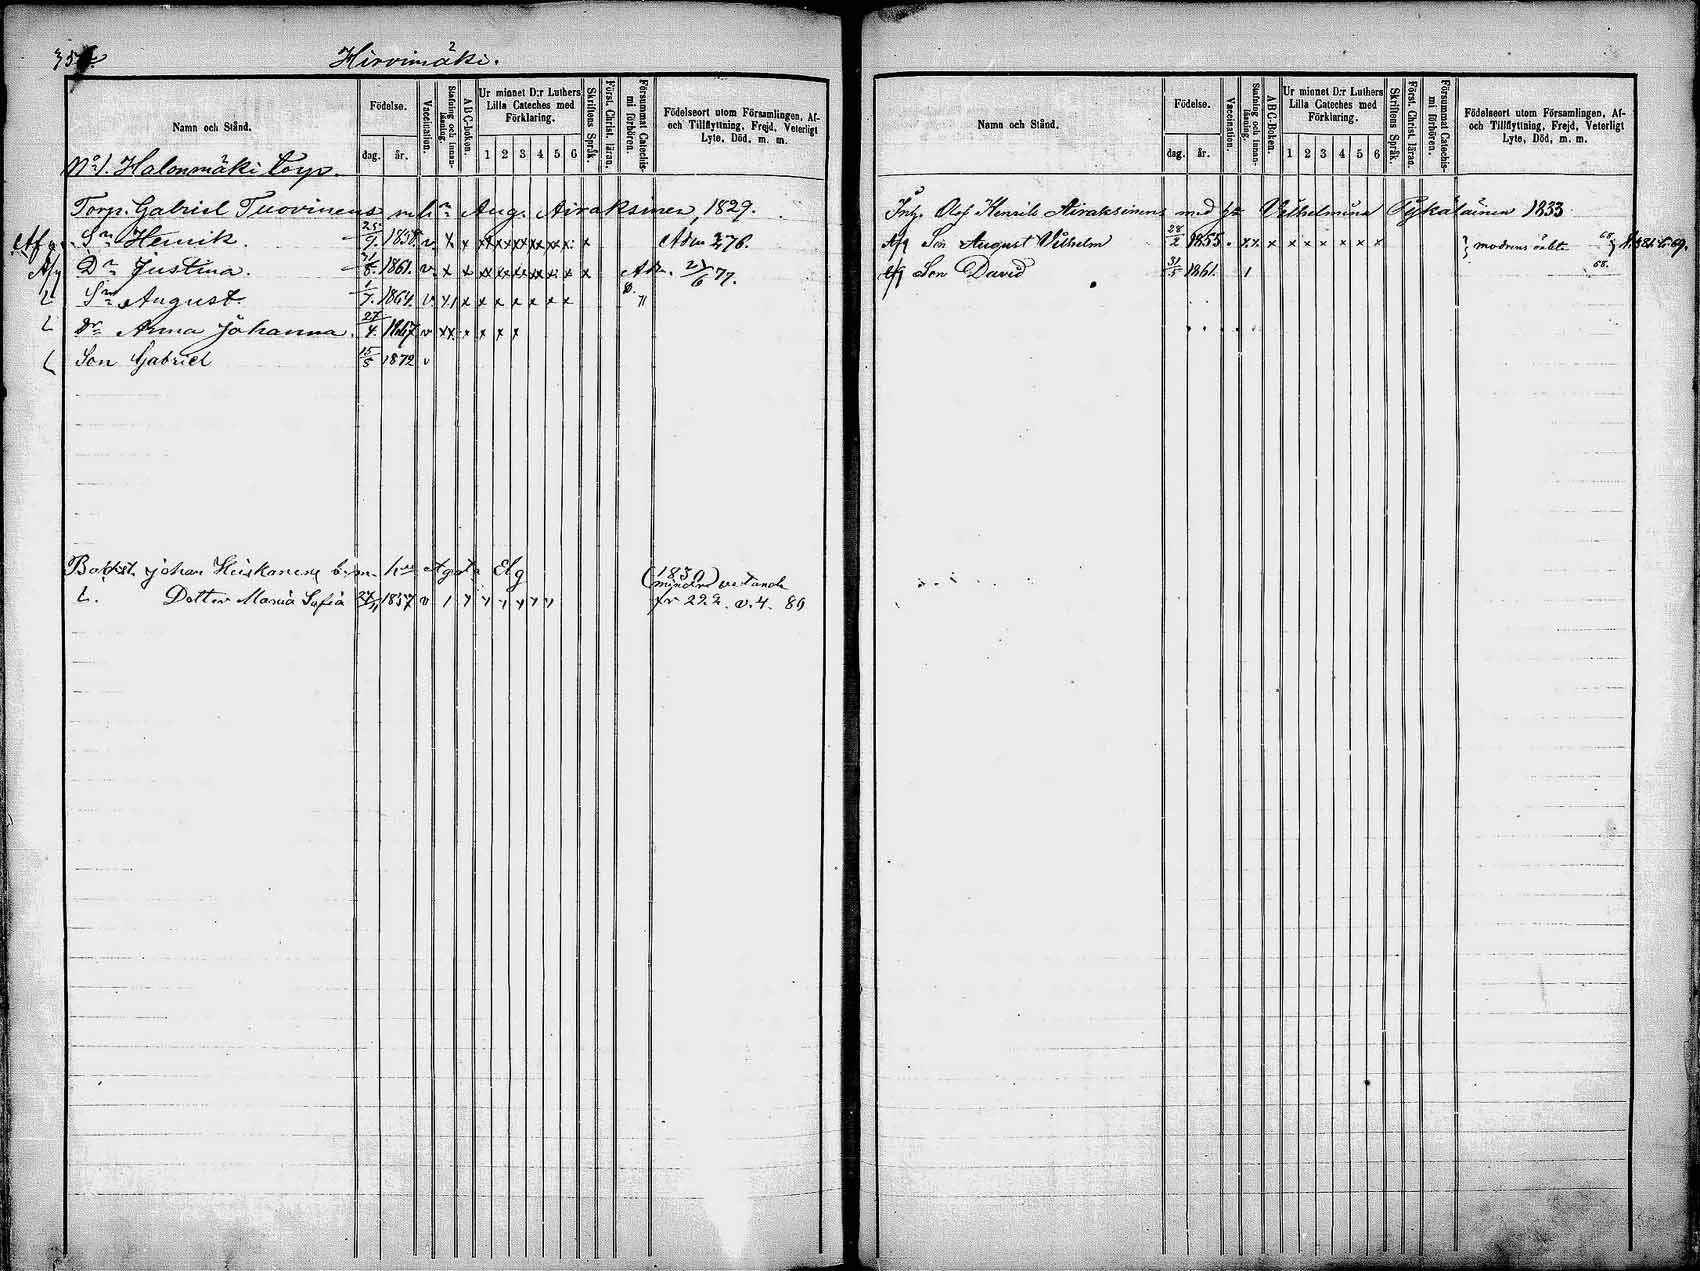 Hirvimäki. 2
Namn och Stånd.
Födelse.
dag. år.
Vaccination.
Stafning och innanläsning.
A B C-boken.
Ur minnet D:r Luthers
Lilla Cateches med
Förklaring.
1 2 3 4 5 6
Skriftens Språk.
Först. Christ. läran.
Försummat Catechismi förhören.
Födelseort utom Församlingen, Af-
och Tillflyttning, Frejd, Veterligt
Lyte, Död, m. m.
No 1. Halonmäki torp.
Torp. Gabriel Tuovinens Aug. Airaksinen 1829.
Sn Henrik. 1858 v x x
Dr Justina. 1861. v x x 21/6 77.
Sn August. 1/7. 1864. v
Dr Anna Johanna. 27/4. 1867 v x x x x x x
Son Gabriel 15/5 1872 v
Johan Heiskanens Agata Elg (1830)
Dotter Maria Sofia 1857 v
Namn och Stånd.
Födelse.
dag. år.
Vaccination.
Stafning och innanläsning.
A B C-Boken.
Ur minnet D:r Luthers
Lilla Cateches med
Förklaring.
1 2 3 4 5 6
Skriftens Språk.
Först. Christ. läran.
Försummat Catechismi förhören.
Födelseort utom Församlingen, Af-
och Tillflyttning, Frejd, Veterligt
Lyte, Död, m. m.
Inh. Olof Henrik Airaksinens med Vilhelmina Pykäläinen 1833
Son August Vilhelm 28/2 1855 x x x x x x x x x
Son David 31/5 1861.